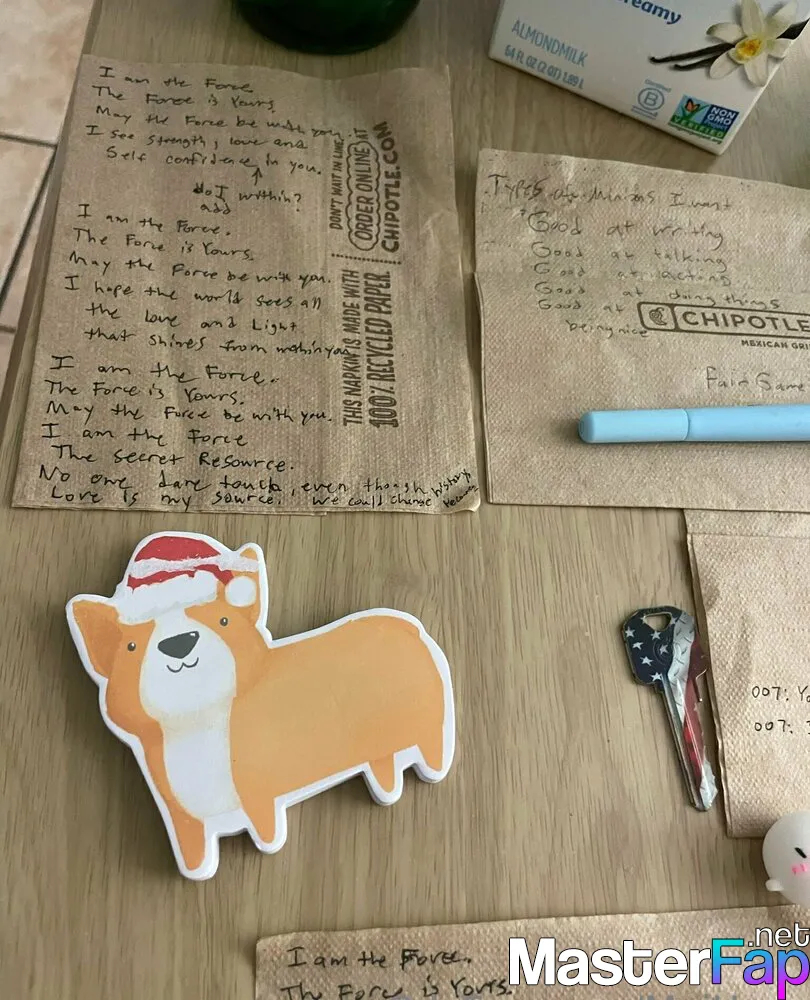 I am the Force.
The Force is Yours.
May the Force be with you.
I see strength, love and
Self confidence in you.
do I within?
add
I am the Force.
The Force is Yours.
May the Force be with you.
I hope the world sees all
the love and Light
that shines from within you
I am the Force.
The Force is Yours.
May the Force be with you.
I am the Force
The Secret Resource.
No one dare touch, even though
Love is my source. We could change history
because
DON'T WAIT IN LINE.
ORDER ONLINE AT
CHIPOTLE.COM
THIS NAPKIN IS MADE WITH
100% RECYCLED PAPER.
reamy
ALMONDMILK
64 FL OZ (2 QT) 1.89 L
Certified
B
NON
GMO
VERIFIED
Types of Minions I want
Good at writing
Good at talking
Good at acting
Good at doing things
Good at
being nice
CHIPOTLE
MEXICAN GRI
Fair Game
007: Yo
007: I
I am the Force.
The Force is Yours.
MasterFap
.net